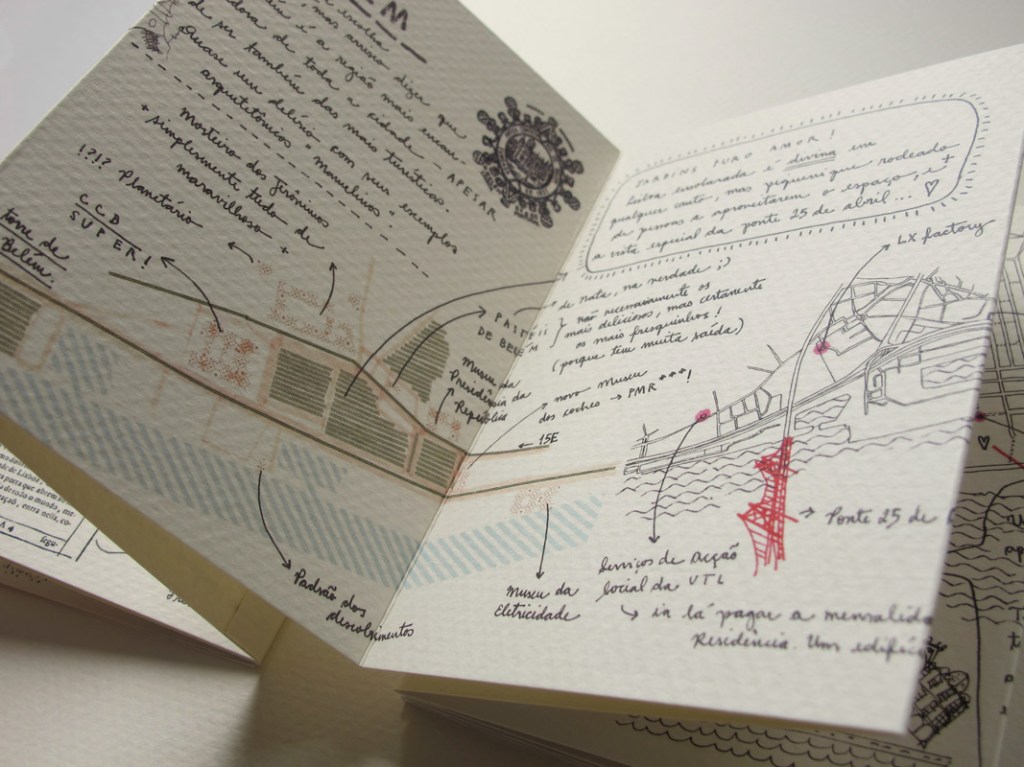 EM
escolha
mas arrisco dizer que
é a região mais encan-
dora de toda a cidade - APESAR
de ser também das mais turísticas.
Quase seu delírio com seus exemplos
arquitetônicos "manuelinos".
+ Mosteiro dos Jerônimos
simplesmente tudo de
maravilhoso +
!?!? Planetário
CCB
SUPER!
torre de
Belém.
PASTÉIS
DE BELÉM
Museu da
Presidência da
República
Padrão dos
descobrimentos
JARDINS PURO AMOR!
Lisboa ensolarada é divina em
qualquer canto, mas pequenique rodeado
de pessoas a aproveitarem o espaço, é +
a vista especial da ponte 25 de abril... ♡
LX factory
de nata, na verdade ;)
não necessariamente os
mais deliciosos, mas certamente
os mais fresquinhos!
(porque tem muita saída)
novo museu
dos coches → PMR***!
← 15E
→ Ponte 25 de
Museu da
Eletricidade
Serviços de Acção
Social da UTL
↳ ia lá pagar a mensalida
Residência. Um edifíc